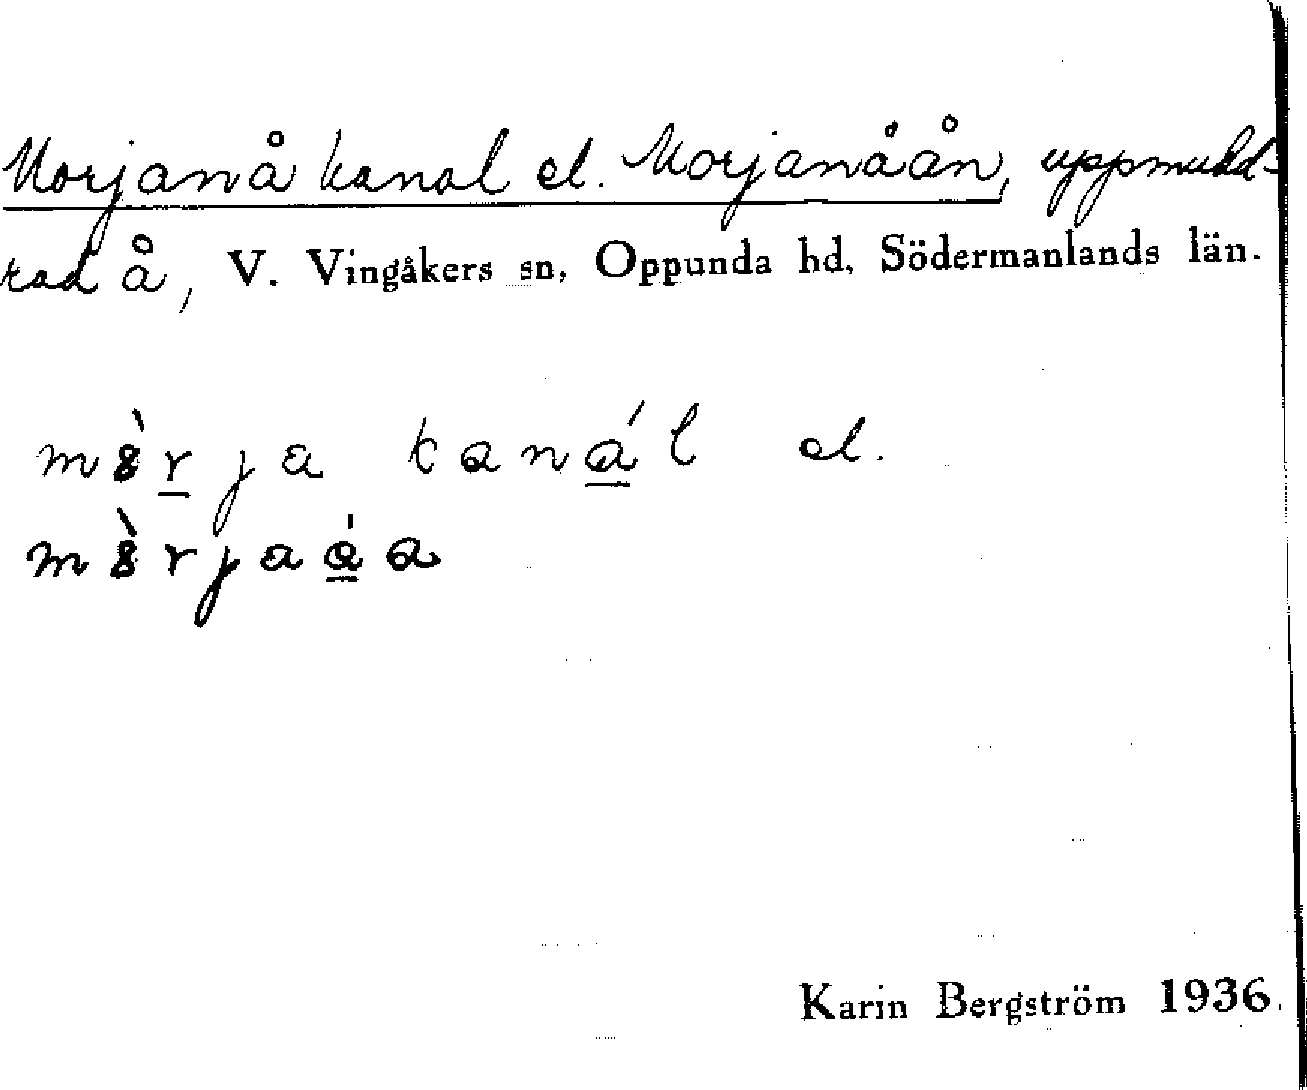 Morjanå kanal el. Morjanåån, uppmudd-
rad å, V. Vingåkers sn, Oppunda hd, Södermanlands län.
el.
Karin Bergström 1936.